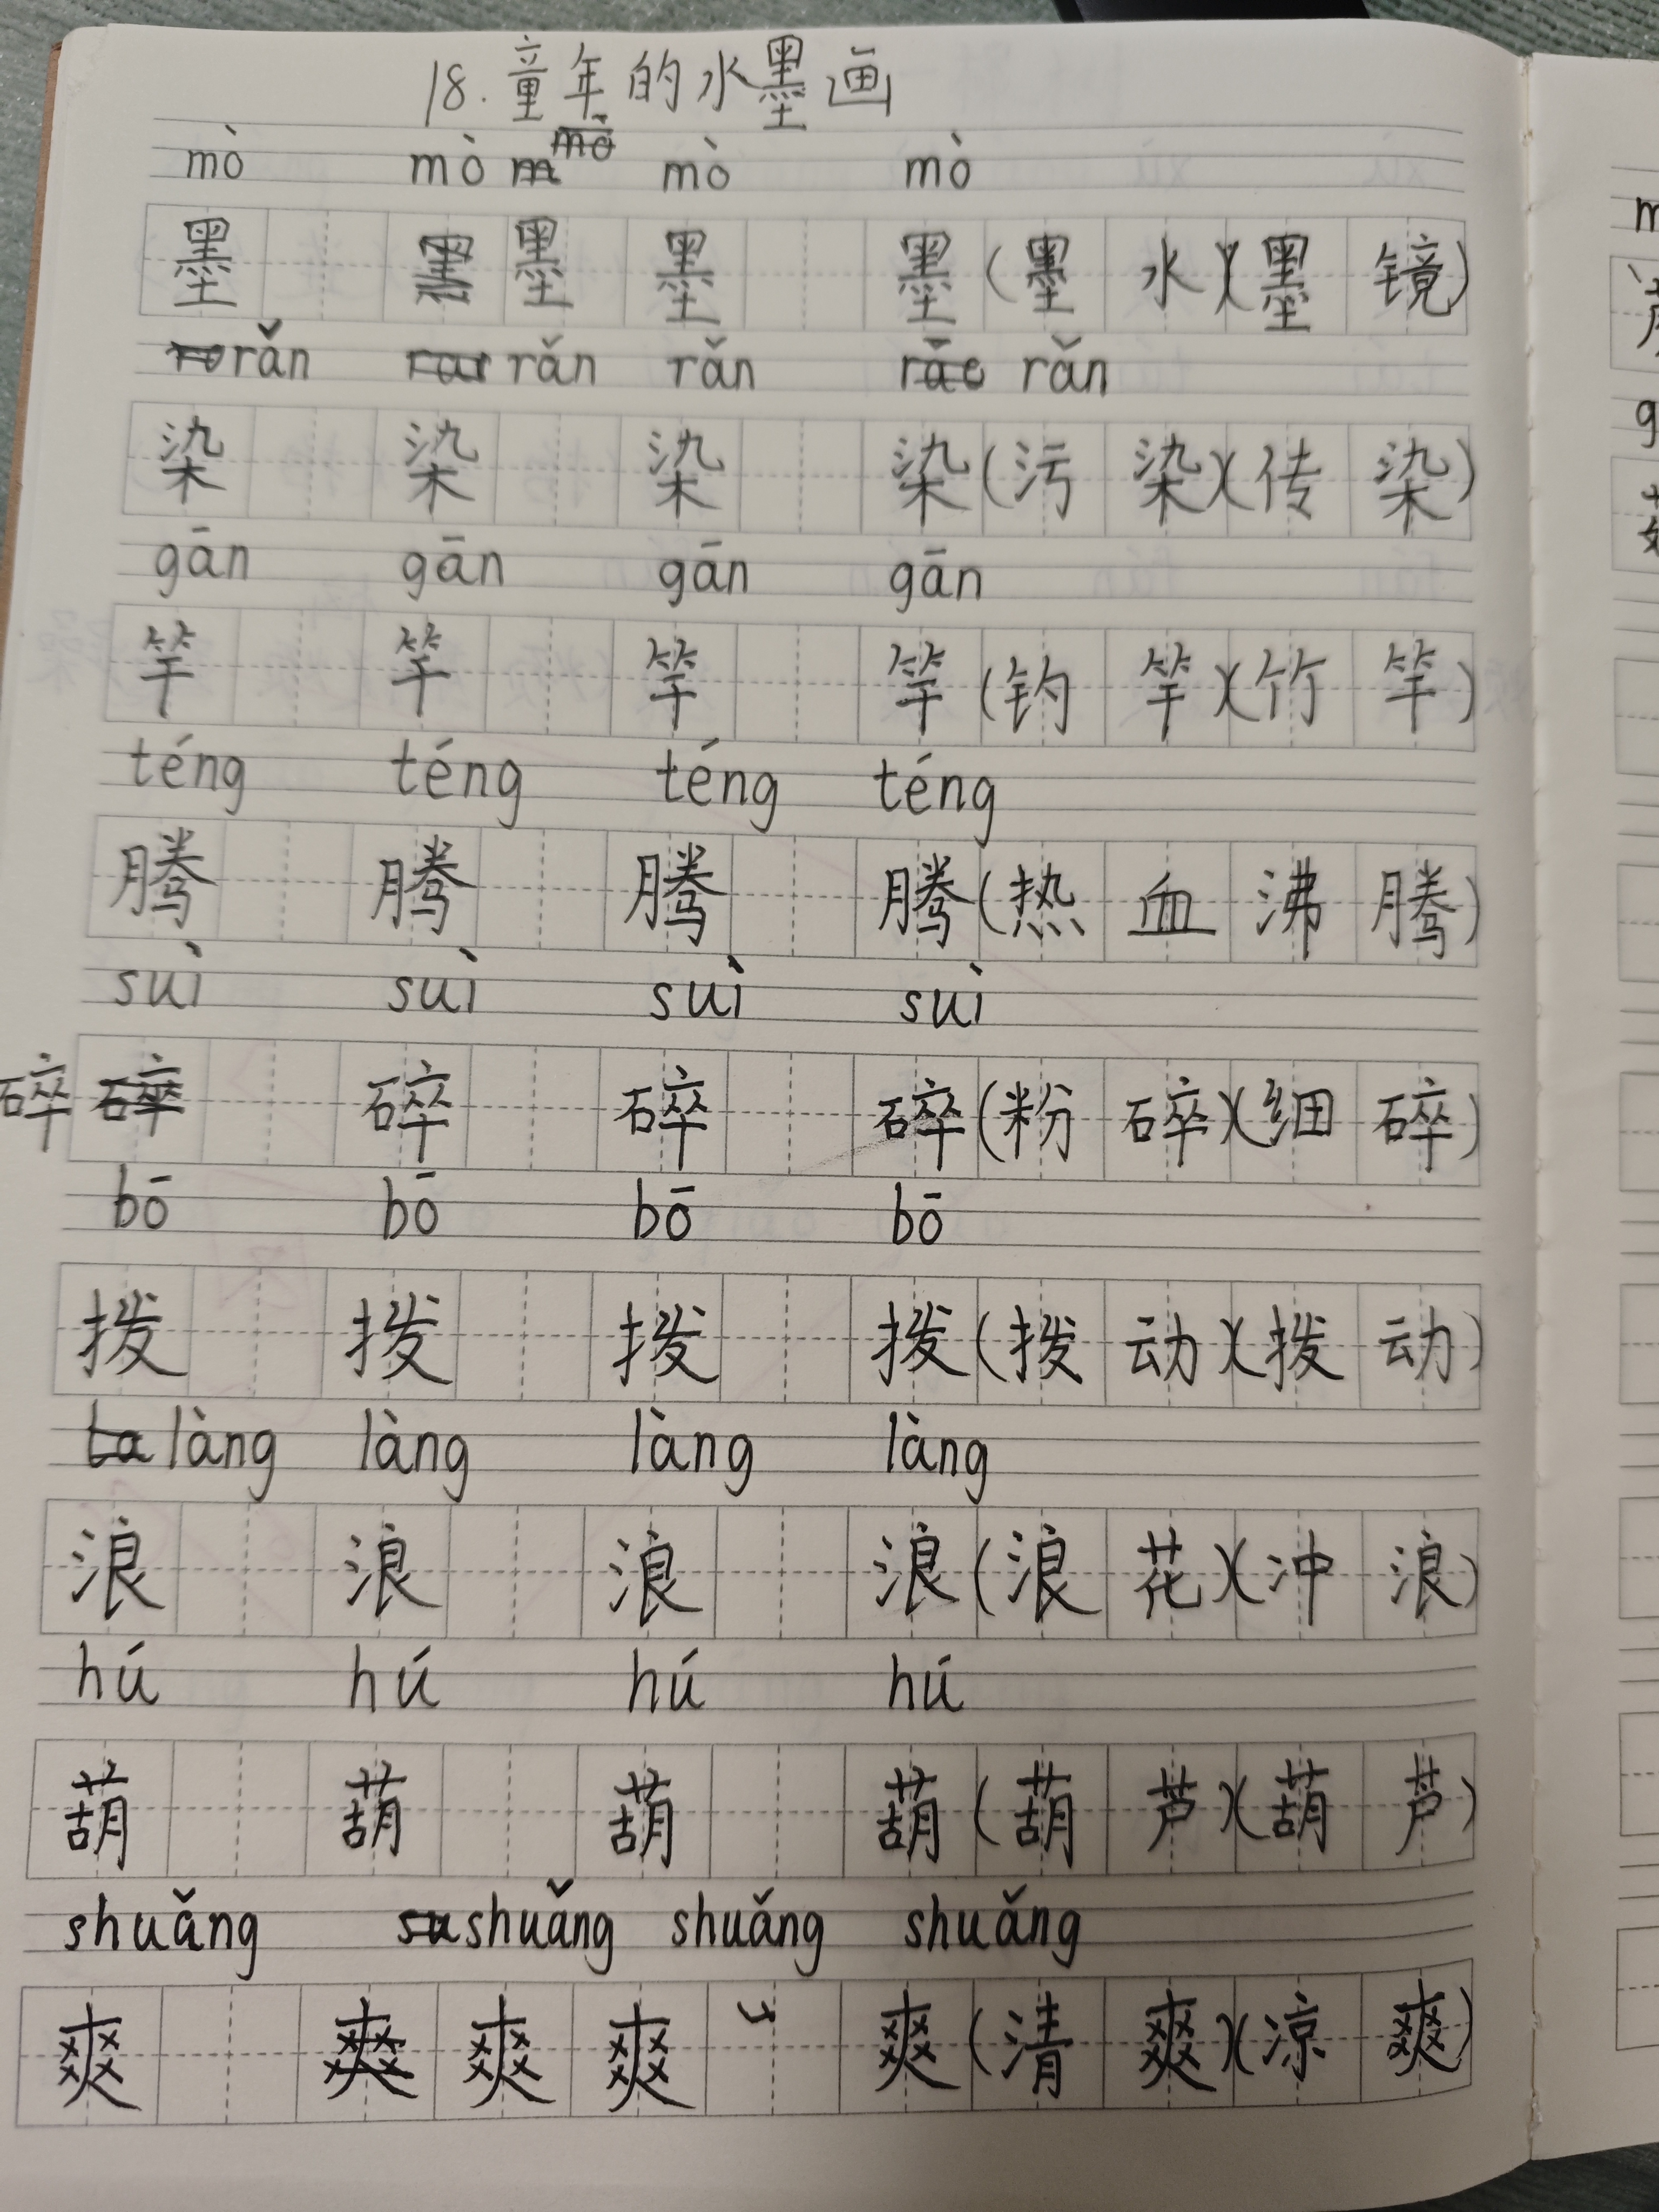 18.童年的水墨画
mò mò mò mò
墨 墨 墨 墨 墨(墨水)(墨镜)
rǎn rǎn rǎn rǎn
染 染 染 染(污染)(传染)
gān gān gān gān
竿 竿 竿 竿(钓竿)(竹竿)
téng téng téng téng
腾 腾 腾 腾(热血沸腾)
suì suì suì suì
碎 碎 碎 碎 碎(粉碎)(细碎)
bō bō bō bō
拨 拨 拨 拨(拨动)(拨动)
làng làng làng làng
浪 浪 浪 浪(浪花)(冲浪)
hú hú hú hú
葫 葫 葫 葫(葫芦)(葫芦)
shuǎng shuǎng shuǎng shuǎng
爽 爽 爽 爽 爽(清爽)(凉爽)